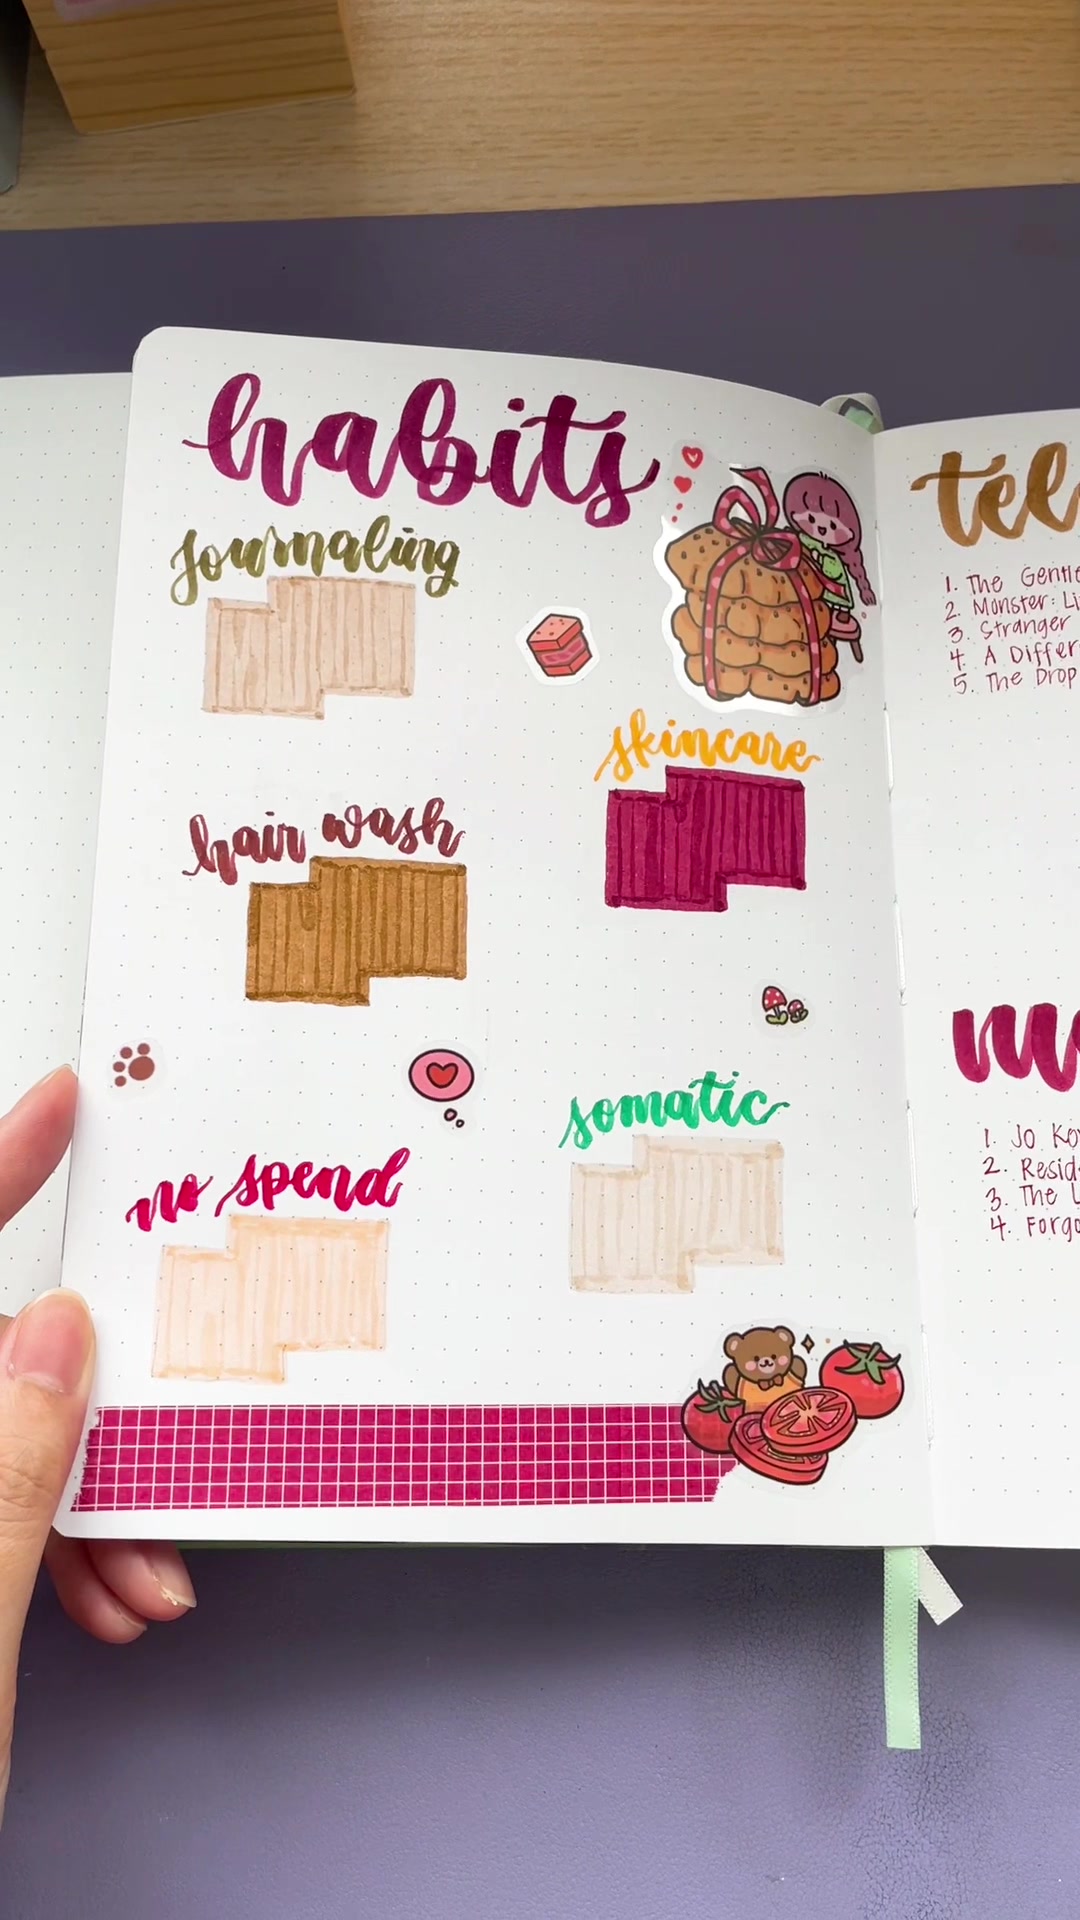 habits
journaling
skincare
hair wash
somatic
no spend
1. The Gentle
2. Monster:
3. Stranger
4. A
5. The Drop
1. Jo
2.
3. The
4.